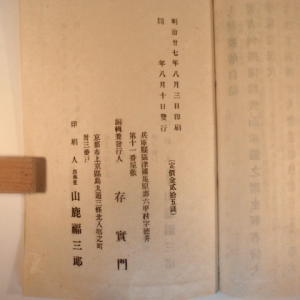 明治廿七年八月三日印刷
同 年八月十日發行
(定價金貳拾五錢)
兵庫縣攝津國菟原郡六甲村字德井
第十一番屋敷
編輯兼發行人 存實門
京都市上京區烏丸通三條北入場之町
卅三番戶
印刷人 山鹿福三郎